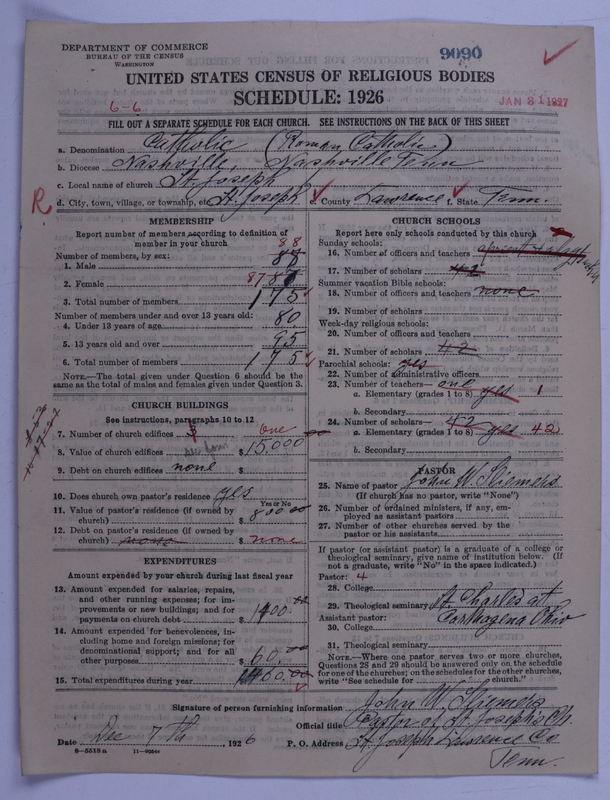 DEPARTMENT OF COMMERCE
BUREAU OF THE CENSUS
WASHINGTON
9090
UNITED STATES CENSUS OF RELIGIOUS BODIES
SCHEDULE: 1926
6-6
JAN 31 1927
FILL OUT A SEPARATE SCHEDULE FOR EACH CHURCH. SEE INSTRUCTIONS ON THE BACK OF THIS SHEET
a. Denomination Catholic (Roman Catholic)
b. Diocese Nashville, Nashville Tenn
c. Local name of church St. Joseph
R d. City, town, village, or township, etc St. Joseph e. County Lawrence f. State Tenn.
MEMBERSHIP
Report number of members according to definition of member in your church
Number of members, by sex:
1. Male 88
2. Female 87 87
3. Total number of members 175
Number of members under and over 13 years old:
4. Under 13 years of age 80
5. 13 years old and over 95
6. Total number of members 175
NOTE.—The total given under Question 6 should be the same as the total of males and females given under Question 3.
CHURCH BUILDINGS
See instructions, paragraphs 10 to 12
7. Number of church edifices one
8. Value of church edifices $15,000
9. Debt on church edifices none $
10. Does church own pastor's residence yes
Yes or No
11. Value of pastor's residence (if owned by church) $ 800.00
12. Debt on pastor's residence (if owned by church) none $ none
EXPENDITURES
Amount expended by your church during last fiscal year
13. Amount expended for salaries, repairs, and other running expenses; for improvements or new buildings; and for payments on church debt $1400.00
14. Amount expended for benevolences, including home and foreign missions; for denominational support; and for all other purposes $ 60.00
15. Total expenditures during year $1460.00
CHURCH SCHOOLS
Report here only schools conducted by this church
Sunday schools:
16. Number of officers and teachers
17. Number of scholars 42
Summer vacation Bible schools:
18. Number of officers and teachers none
19. Number of scholars
Week-day religious schools:
20. Number of officers and teachers
21. Number of scholars 42
Parochial schools: yes
22. Number of administrative officers
23. Number of teachers— one
a. Elementary (grades 1 to 8) yes 1
b. Secondary
24. Number of scholars— 42
a. Elementary (grades 1 to 8) yes 42
b. Secondary
PASTOR
25. Name of pastor John W. Sliemers
(If church has no pastor, write "None")
26. Number of ordained ministers, if any, employed as assistant pastors
27. Number of other churches served by the pastor or his assistants
If pastor (or assistant pastor) is a graduate of a college or theological seminary, give name of institution below. (If not a graduate, write "No" in the space indicated.)
Pastor: 4
28. College
29. Theological seminary St. Charles at
Assistant pastor: Carthagena Ohio
30. College
31. Theological seminary
NOTE.—Where one pastor serves two or more churches, Questions 28 and 29 should be answered only on the schedule for one of the churches; on the schedules for the other churches, write "See schedule for church."
Signature of person furnishing information John W. Sliemers
Official title Pastor of St. Joseph's Ch.
Date Dec 7th, 1926 P. O. Address St Joseph Lawrence Co
Tenn.
8-5518a